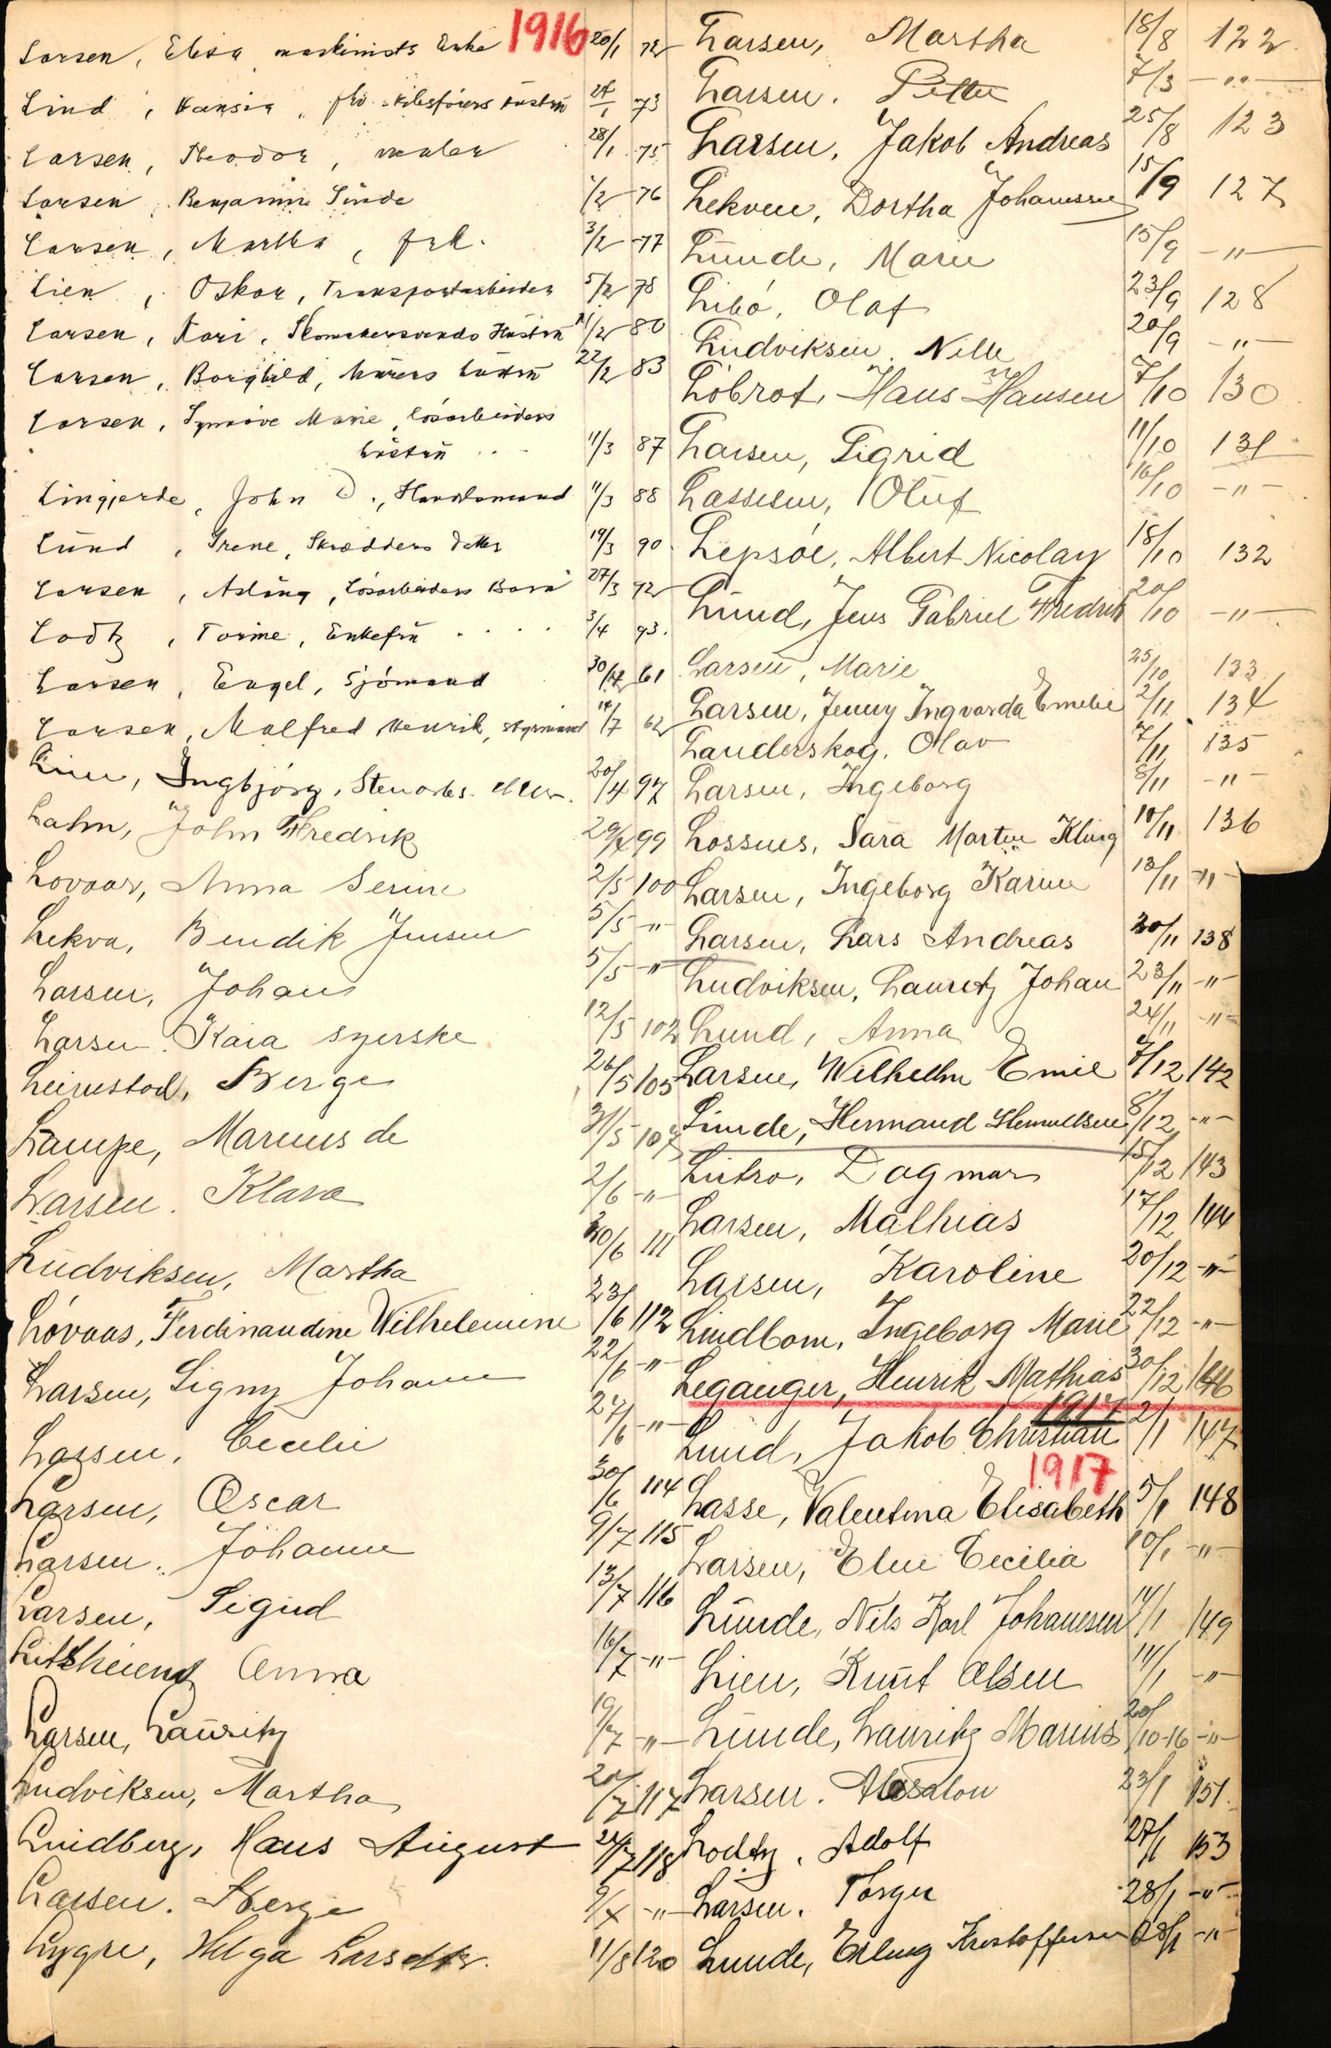 1916
Larsen, Elisa, maskinists Enke 20/1 72
Lind, Hansia, Hustrü 24/1 73
Larsen, Theodor, maler 28/1 75
Larsen, Benjamin Linde 1/2 76
Larsen, Martha, frk. 3/2 77
Lien, Oskar, Transportarbeider 5/2 78
Larsen, Kari, Skomakersvends Hüstrü 11/2 80
Larsen, Borghild, Mürers hüstrü 22/2 83
Larsen, Synnöve Marie, lösarbeiders
hüstrü ... 11/3 87
Lingjerde, John D., Handlsmand 11/3 88
Lünd, Irene, Skrædders datter 19/3 90
Larsen, Aslaüg, lösarbeiders Barn 27/3 92
Lodtz, Torine, Enkefrü .... 3/4 93.
Larsen, Engel, Sjömand 30/12 61
Larsen, Malfred Henrik, styrmand 14/7 62
Lien, Ingbjörg, Stenarb. 20/4 97
Lahn, John Fredrik 29/4 99
Lovaas, Anna Serine 2/5 100
Lekva, Bendik Jensen 5/5 -"-
Larsen, Johan 5/5 -"-
Larsen. Kaia syerske 12/5 102
Leirustad, Berge 26/5 105
Lampe, Marius de 31/5 107
Larsen. Klara 2/6 -"-
Lüdviksen, Martha 20/6 111
Lóvaas, Ferdinandine Wilhelemine 23/6 112
Larsen, Signy Johanne 22/6 -"-
Larsen, Cecelie 27/6 -"-
Larsen, Oscar 30/6 114
Larsen. Johanne 9/7 115
Larsen, Sigurd 13/7 116
Anna 16/7 -"-
Larsen, Laüritz 19/7 -"-
Ludviksen, Martha 20/7 117
Lindberg, Hans August 24/7 118
Larsen. Berge 9/8 -"-
Lygre, Helga Larsdtr. 11/8 120
Larsen, Martha 18/8 122
Larsen. Petter 7/3 -"-
Larsen, Jakob Andreas 25/8 123
Lekven, Dortha Johannesen 15/9 127
Lünde, Marie 15/9 -"-
Libó, Olaf 23/9 128
Lüdviksen. Nille 20/9 -"-
Lóbrot, Hans Hansen 7/10 130
Larsen, Sigrid 11/10 131
Lassesen, Olüf 16/10 -"-
Lepsöe, Albert Nicolay 18/10 132
Lünd, Jens Gabriel Fredrik 20/10 -"-
Larsen, Marie 25/10 133
Larsen, Jenny Ingvarda Emelie 2/11 134
Landerskog, Olav 7/11 135
Larsen, Ingeborg 8/11 -"-
Lossius, Sara Martin Kluig 10/11 136
Larsen, Ingeborg Karine 13/11 -"-
Larsen, Lars Andreas 20/11 138
Ludviksen, Lauretz Johan 23/11 -"-
Lund, Anna 24/11 -"-
Larsen, Wilhelm Emil 7/12 142
Linde, Hermand 8/12 -"-
Lutro, Dagmar 15/12 143
Larsen, Mathias 17/12 144
Larsen, Karoline 20/12 -"-
Lindbom, Ingeborg Marie 22/12 -"-
Leganger, Henrik Mathias 30/12 146
1917
Lund, Jakob Christian 2/1 147
1917
Lasse, Valentina Elisabeth 5/1 148
Larsen, Eline Cecilia 10/1 -"-
Lünde, Nils Karl Johannesen 14/1 149
Lien, Knüt Olsen 14/1 -"-
Lünde, Lauritz Marius 20/10-16 -"-
Larsen. Absalon 23/1 151.
Lodtz, Adolf 27/1 153
Larsen. Torger 28/1 -"-
Lunde, Erling Kristoffersen 28/1 -"-